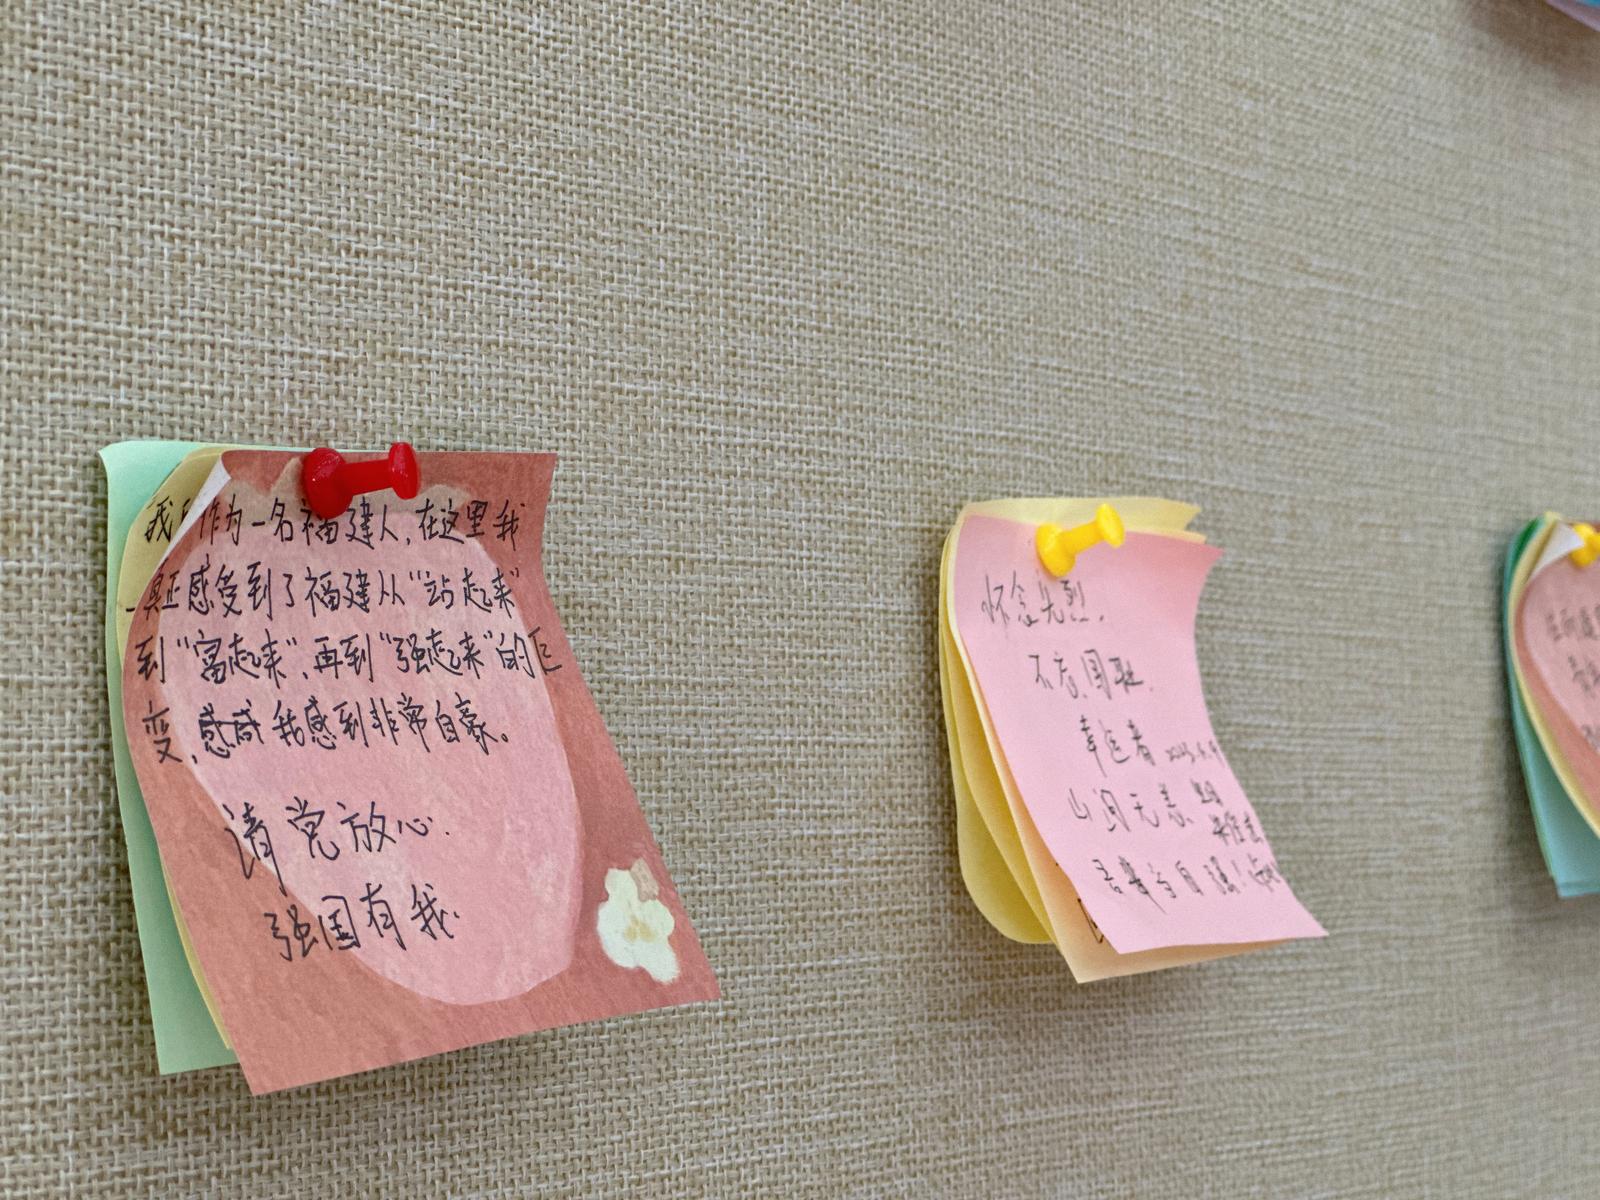 我作为一名福建人,在这里我
真正感受到了福建从“站起来”
到“富起来”,再到“强起来”的巨
变,感感我感到非常自豪。
请党放心.
强国有我.
怀念先烈,
不忘国耻.
幸运者
山河无恙
吾辈当自强!